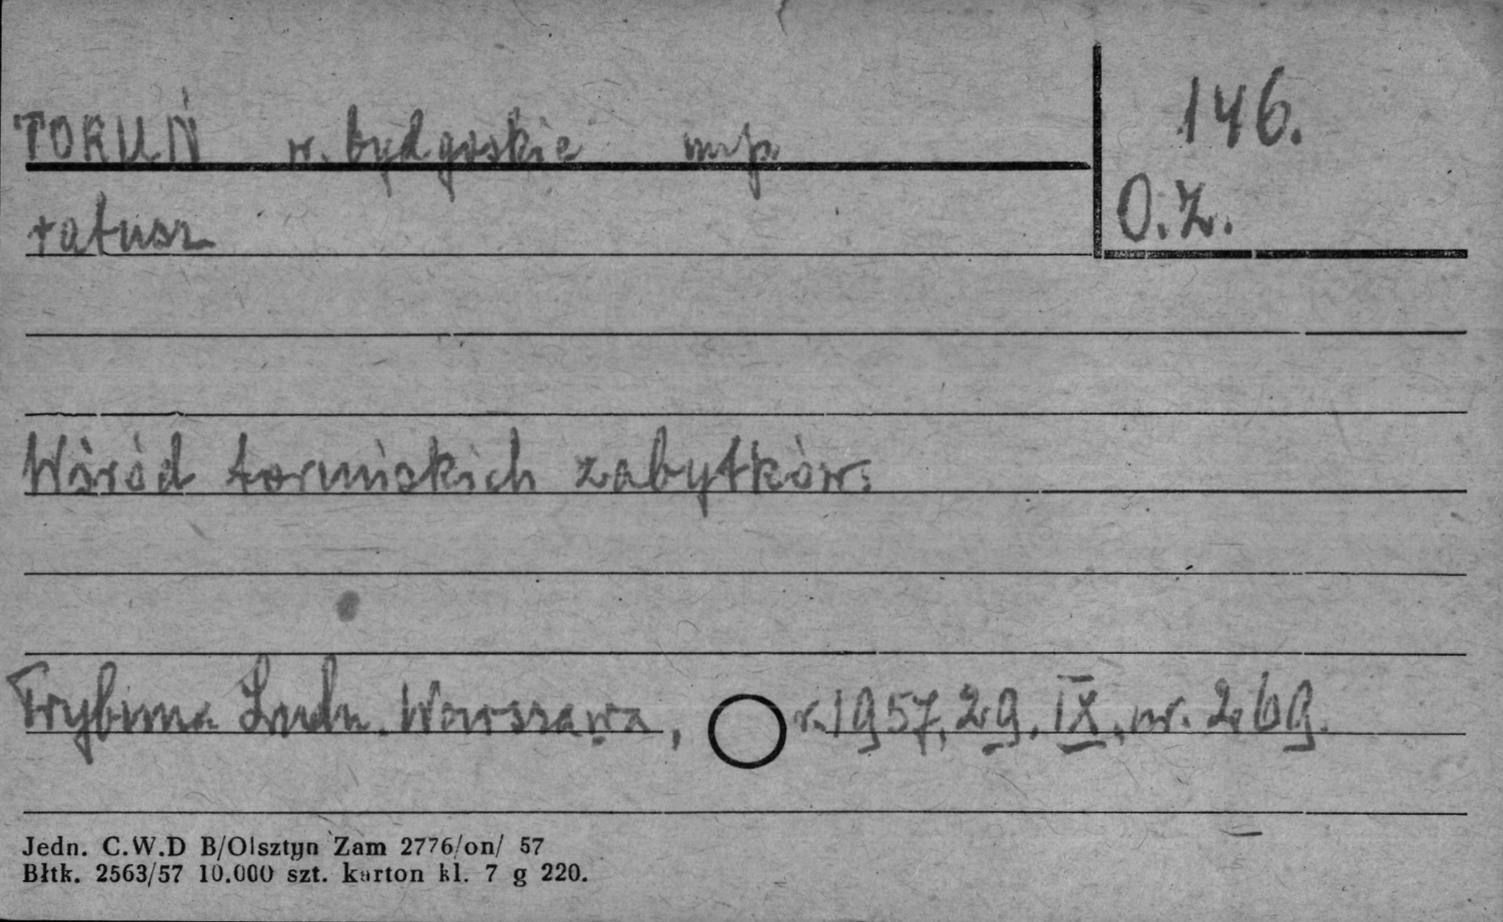 TORUŃ w. bydgoskie mp. 146.
ratusz O.Z.
Wśród toruńskich zabytków.
Trybuna Ludu. Warszawa, r. 1957, 29. IX, nr. 269.
Jedn. C.W.D B/Olsztyn Zam 2776/on/ 57
Błtk. 2563/57 10.000 szt. karton kl. 7 g 220.